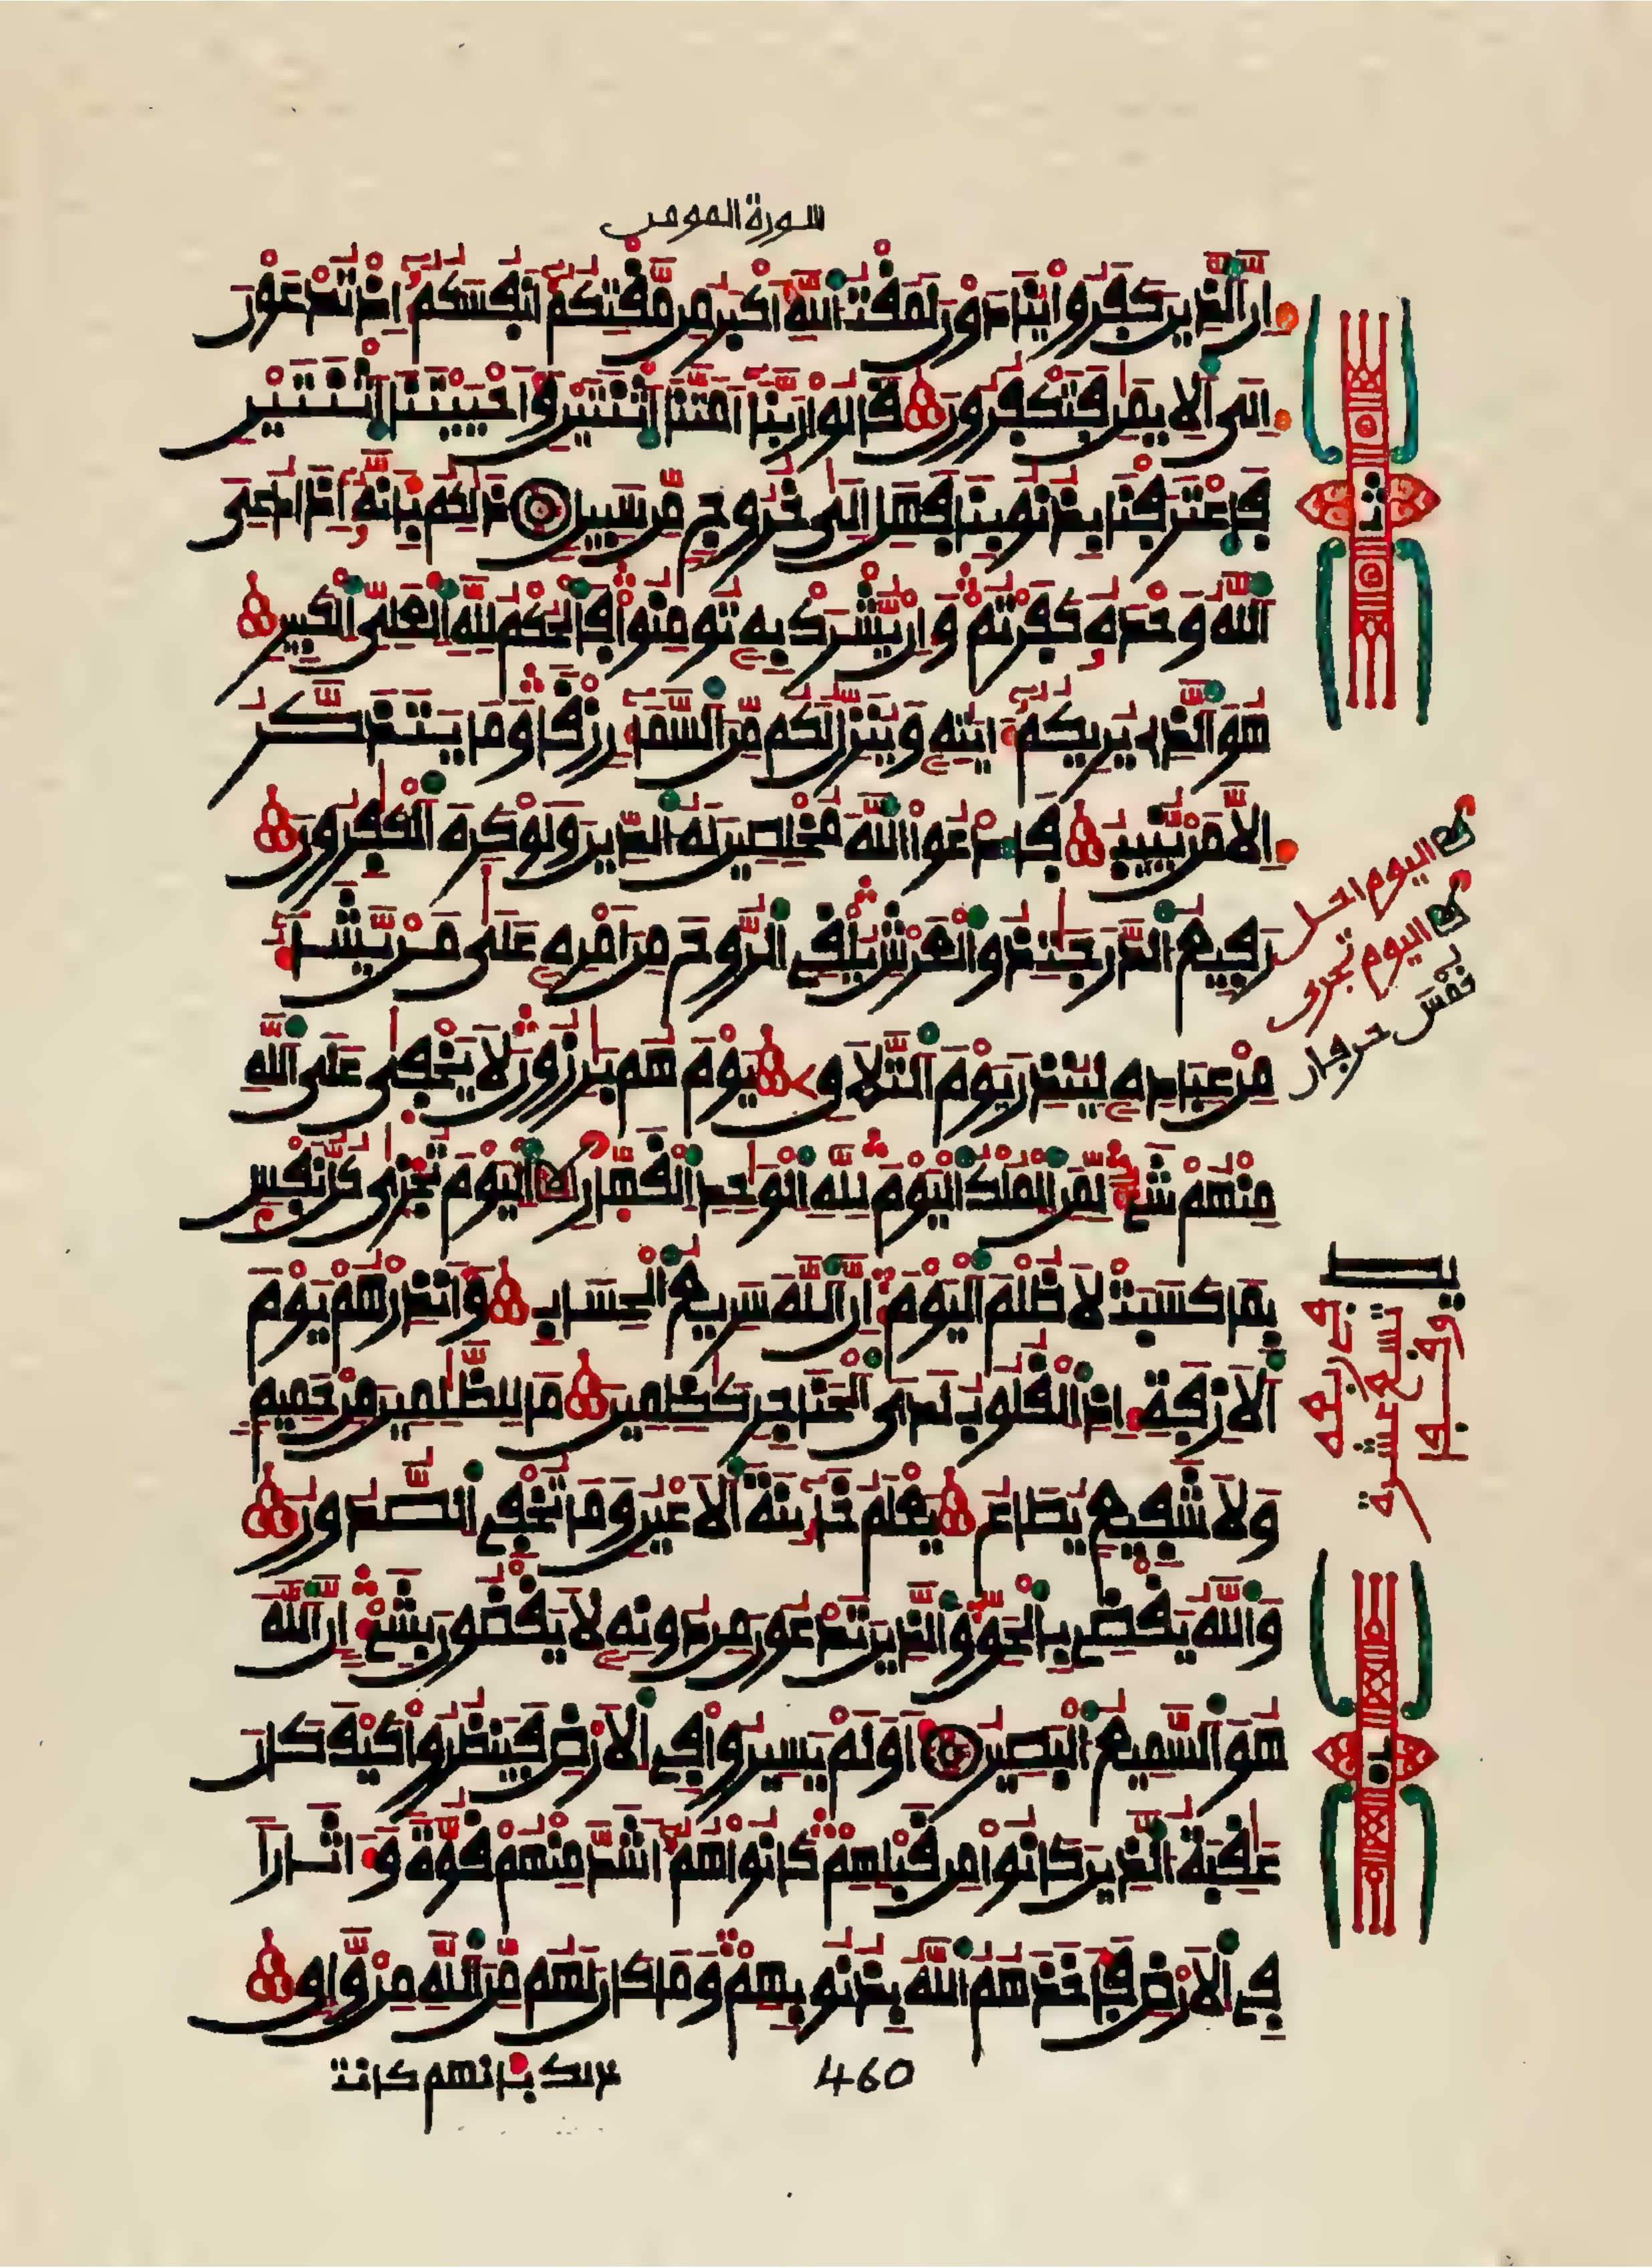 سورة المومن
ان الذين كفروا ينادون لمقت الله اكبر من مقتكم انفسكم اذ تدعون
الى الايمن فتكفرون قالوا ربنا امتنا اثنتين واحييتنا اثنتين
فاعترفنا بذنوبنا فهل الى خروج من سبيل ذلكم بانه اذا دعى
الله وحده كفرتم وان يشرك به تومنوا فالحكم لله العلى الكبير
هو الذى يريكم ايته وينزل لكم من السماء رزقا وما يتذكر
الا من ينيب فادعوا الله مخلصين له الدين ولو كره الكفرون
رفيع الدرجت ذو العرش يلقى الروح من امره على من يشاء
من عباده لينذر يوم التلاق يوم هم برزون لا يخفى على الله
منهم شىء لمن الملك اليوم لله الوحد القهار اليوم تجزى كل نفس
بما كسبت لا ظلم اليوم ان الله سريع الحساب وانذرهم يوم
الازفة اذ القلوب لدى الحناجر كظمين ما للظلمين من حميم
ولا شفيع يطاع يعلم خائنة الاعين وما تخفى الصدور
والله يقضى بالحق والذين تدعون من دونه لا يقضون بشىء ان الله
هو السميع البصير اولم يسيروا فى الارض فينظروا كيف كان
عقبة الذين كانوا من قبلهم كانوا هم اشد منهم قوة واثارا
فى الارض فاخذهم الله بذنوبهم وما كان لهم من الله من واق
ذلك بانهم كانت
460
ثمن
اليوم
اليوم تجزى
نفس
تسع عشرة